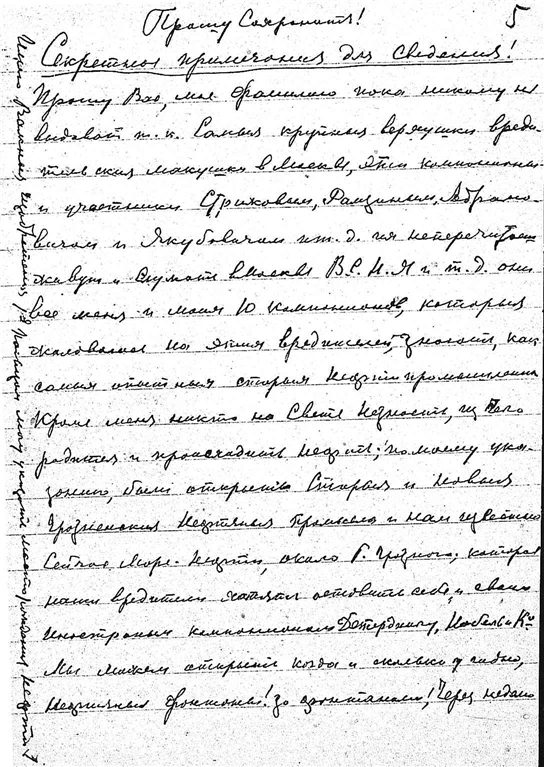 Прошу Сохранить!
5
Секретное примечания для сведения!
Прошу Вас, мою фамилию пока никому не
выдават т.к. Самыя крупныя верхушки вреди-
тельския макушки в Москве, эти компанионы
и участники Стрижовым, Рамзиным, Абрамо-
вичом и Якубовичом и т.д. их
живут и служат в Москве В.С.Н.Х и т.д. они
все меня и моих 10 компанионов, которыя
жаловался на этих вредителей, знают, как
самых опытных старых Нефтепромышленн
Кроме меня никто на Свете Незнает, из чего
родится и происходит Нефть; по моему ука-
занию, были открыты Старыя и Новыя
Грозненския Нефтяныя Промысла и нам известно
Сейчас, Море-Нефти, около Г. Грознаго, которая
наши вредители хотят оставить себе, и своим
Иностраным компанионам Детердингу, Нобель и Ко
Мы можем открыть когда и сколько угодно,
Нефтяныя фонтаны! за фонтаном! Через недаль